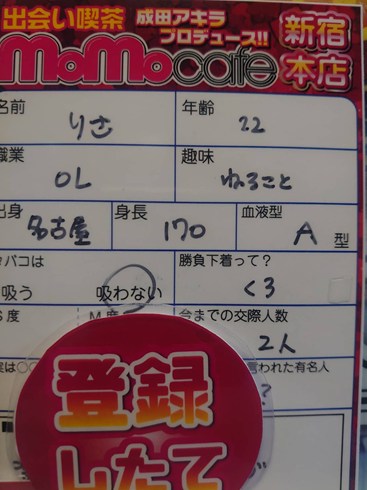 出会い喫茶 成田アキラ
プロデュース!!
新宿
本店
MoMocafe
名前 りさ 年齢 22
職業 OL 趣味 ねること
出身 名古屋 身長 170 血液型 A 型
タバコは 吸う 吸わない 勝負下着って? くろ
S度 M度 今までの交際人数 2人
実は○○ 言われた有名人
?
登録
したて